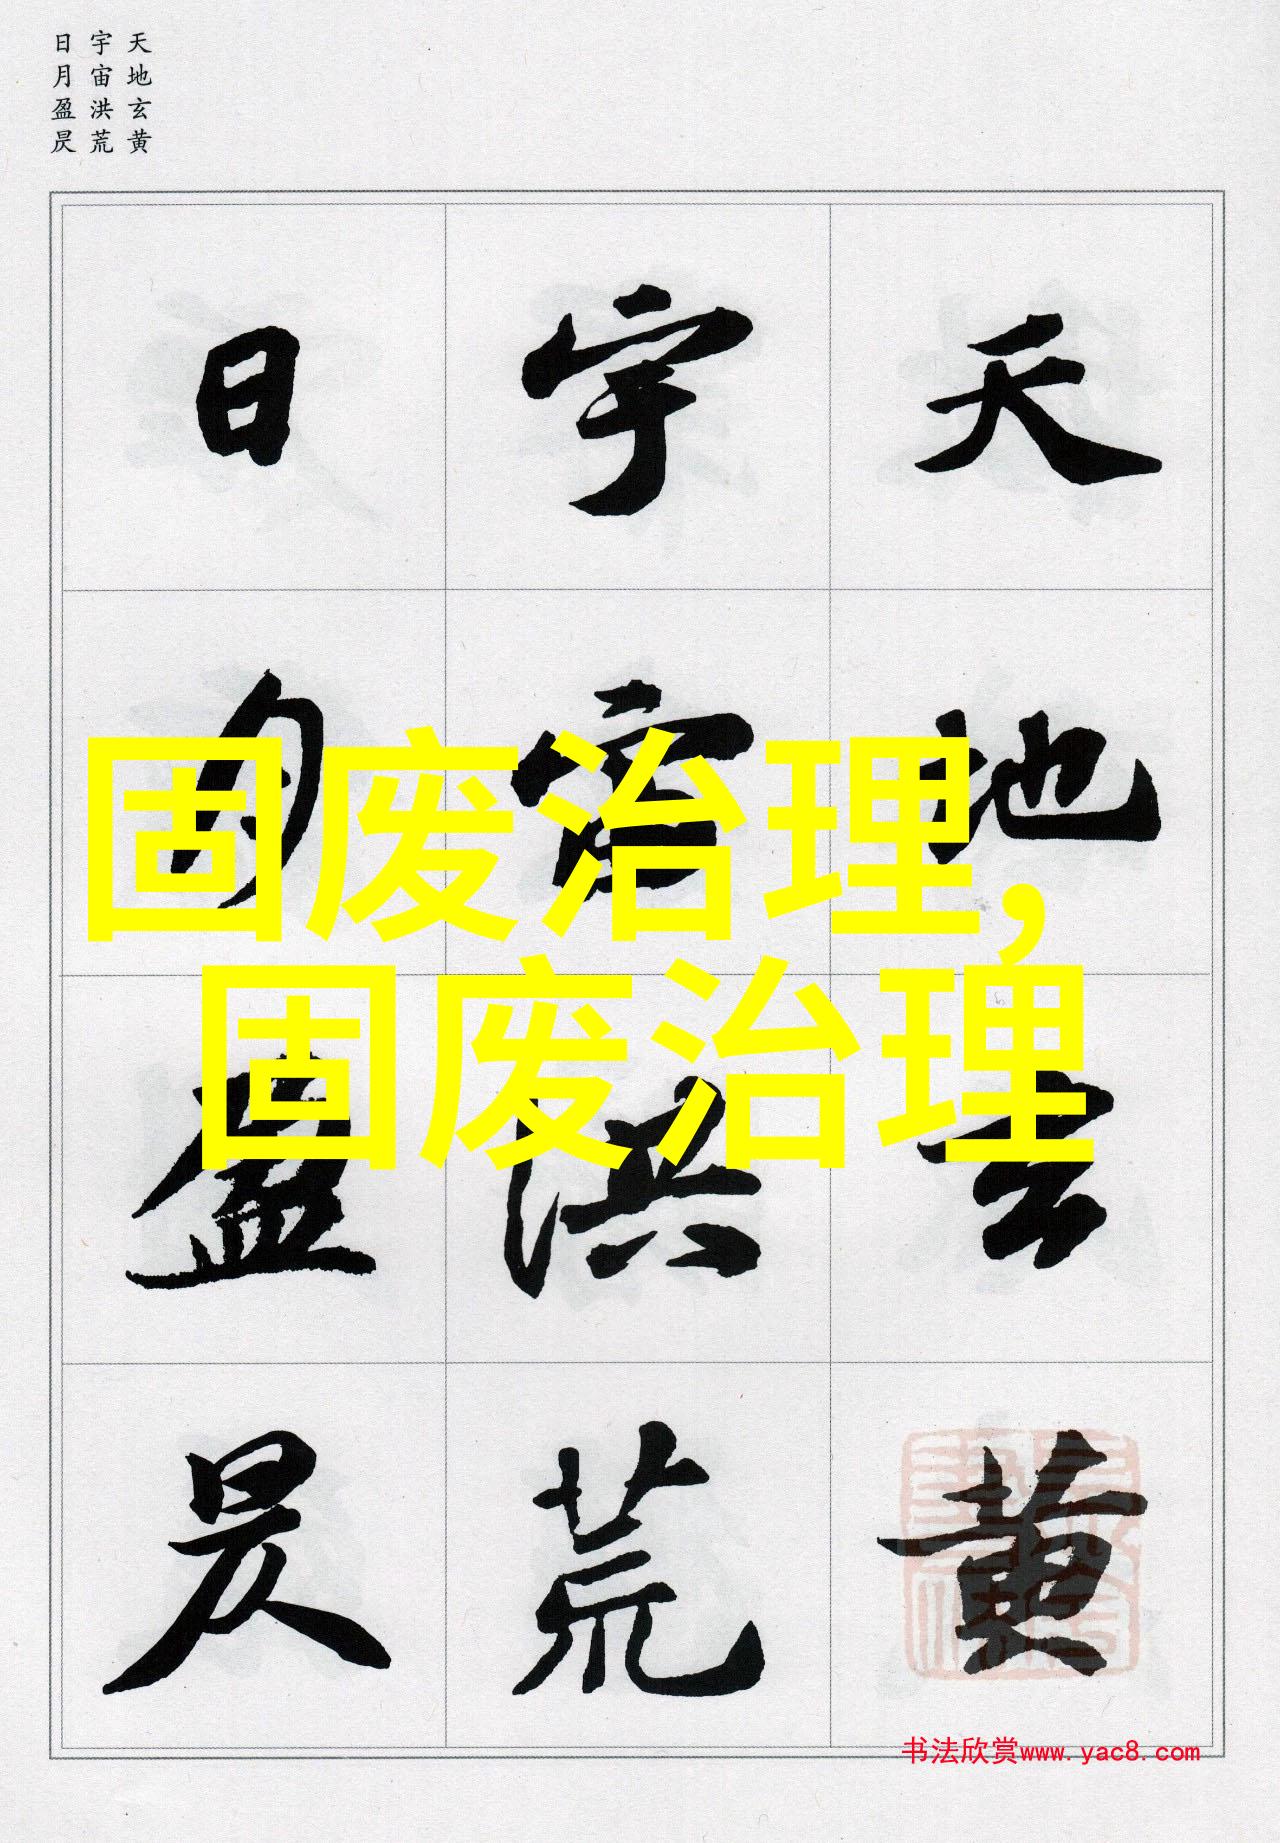 天地玄黄
宇宙洪荒
日月盈昃
天地玄黄
宇宙洪荒
日月盈昃
固废治理，
固废治理
书法欣赏www.yac8.com